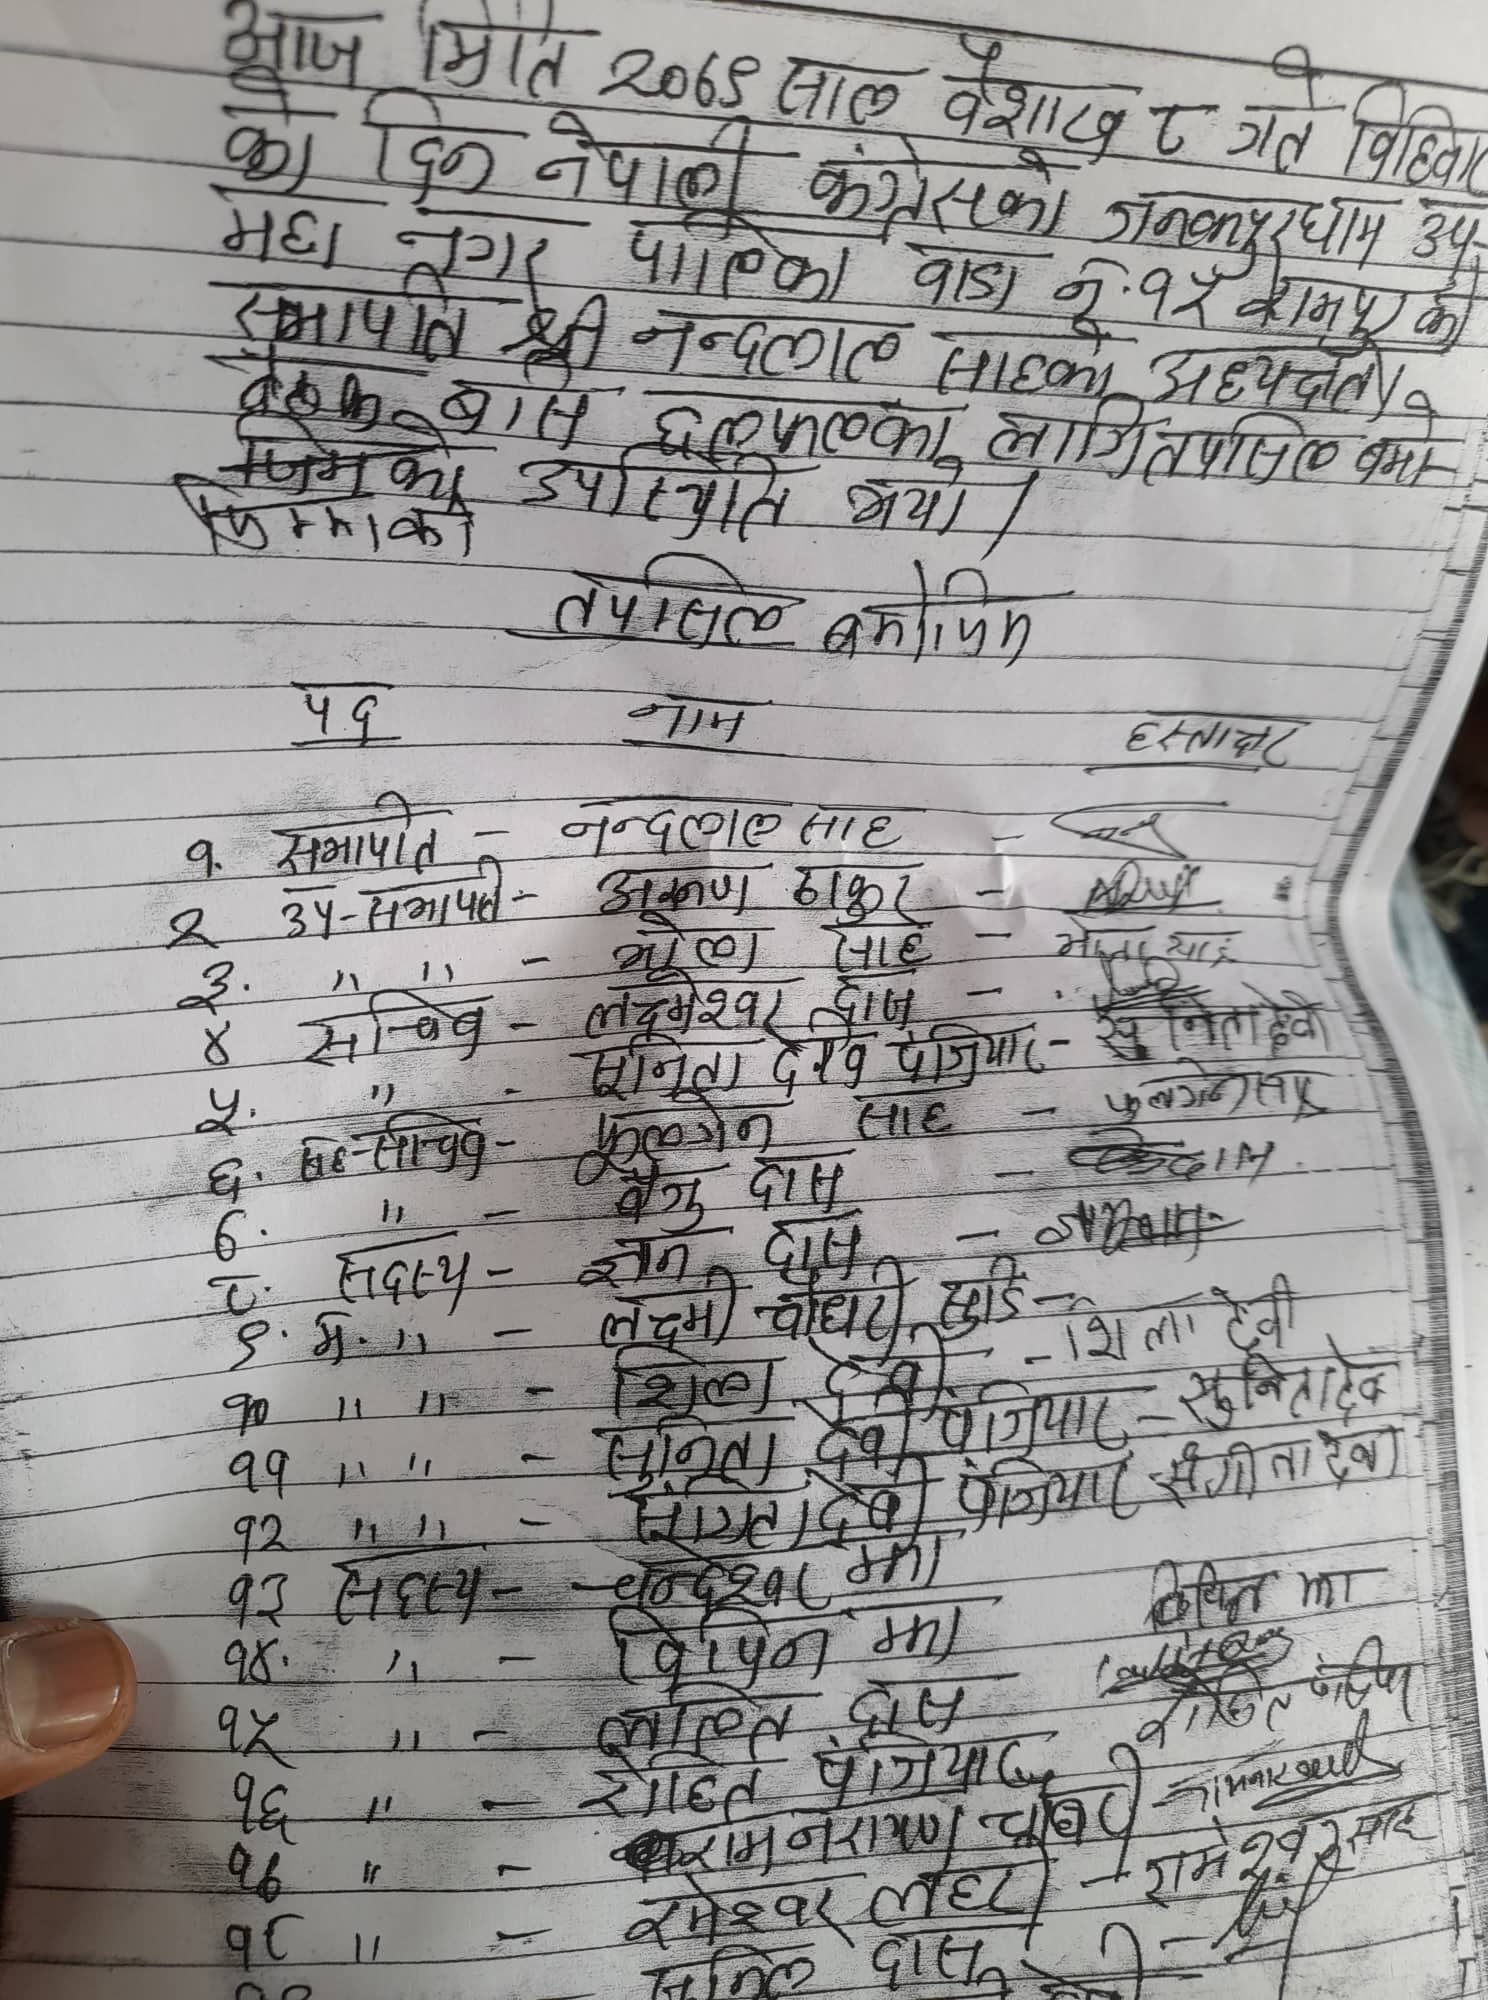 आज मिति २०७९ साल वैशाख ८ गते विहिवार
को दिन नेपाली कंग्रेसको जनकपुरधाम उप-
महा नगर पालिका वार्ड नं. १५ को
सभापति श्री नन्दलाल साहको अध्यक्षता
बैठक बसि छलफलका लागि तपसिल बमो
उपस्थिति भयो।
तपसिल बमोजिम
पद नाम हस्ताक्षर
१. सभापति - नन्दलाल साह -
२ उप-सभापति - अरूण ठाकुर -
३. " " - भोला साह -
४ सचिव - लक्ष्मेश्वर दास -
५. " - सुनिता देवि पंजियार - सुनिता देवी
६. सह-सचिव - फुलगेन साह -
७. " - बैजु दास - दास
८. सदस्य - ज्ञान दास -
९. म. " - लक्ष्मी चौधरी सुडि -
१० " " - शिला देवी - शिला देवी
११ " " - सुनिता देवी पंजियार - सुनिता देव
१२ " " - संगिता देवी पंजियार संगीता देवी
१३ सदस्य - चन्देश्वर झा
१४. " - विपिन झा विपिन झा
१५ " - ललित दास
१६ " - रोहित पंजियार
१७ " - रामनरायण चौधरी -
१८ " - रमेश्वर साह - रामेश्वर साह
दास -